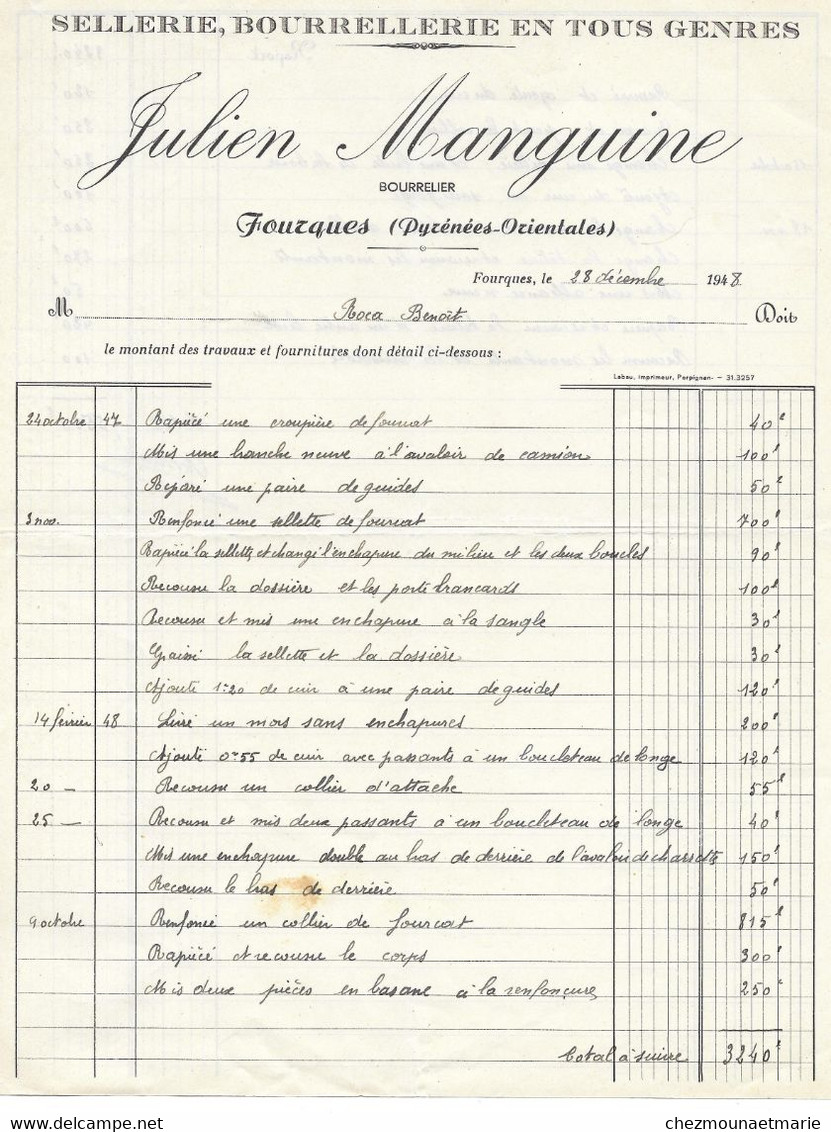 SELLERIE, BOURRELLERIE EN TOUS GENRES
Julien Manguine
BOURRELIER
Fourques (Pyrénées-Orientales)
Fourques, le 28 décembre 1948
M Roca Benoît Doit
le montant des travaux et fournitures dont détail ci-dessous :
Labau, Imprimeur, Perpignan- — 31.3257
24 octobre 47 Rapiécé une croupière de fourcat 40f
Mis une branche neuve à l'avaloir de camion 100f
Réparé une paire de guides 50f
3 nov. Renfoncé une sellette de fourcat 700f
Rapiécé la sellette et changé l'enchapure du milieu et les deux boucles 90f
Recousu la dossière et les porte brancards 100f
Recousu et mis une enchapure à la sangle 30f
Graissé la sellette et la dossière 30f
Ajouté 1m20 de cuir à une paire de guides 120f
14 février 48 Livré un mors sans enchapures 200f
Ajouté 0m55 de cuir avec passants à un boucleteau de longe 120f
20 — Recousu un collier d'attache 55f
25 — Recousu et mis deux passants à un boucleteau de longe 40f
Mis une enchapure double au bas de derrière de l'avaloir de charrette 150f
Recousu le bas de derrière 50f
9 octobre Renfoncé un collier de fourcat 815f
Rapiécé et recousu le corps 300f
Mis deux pièces en basane à la renfonçure 250f
total à suivre 3240f
www.delcampe.net chezmounaetmarie